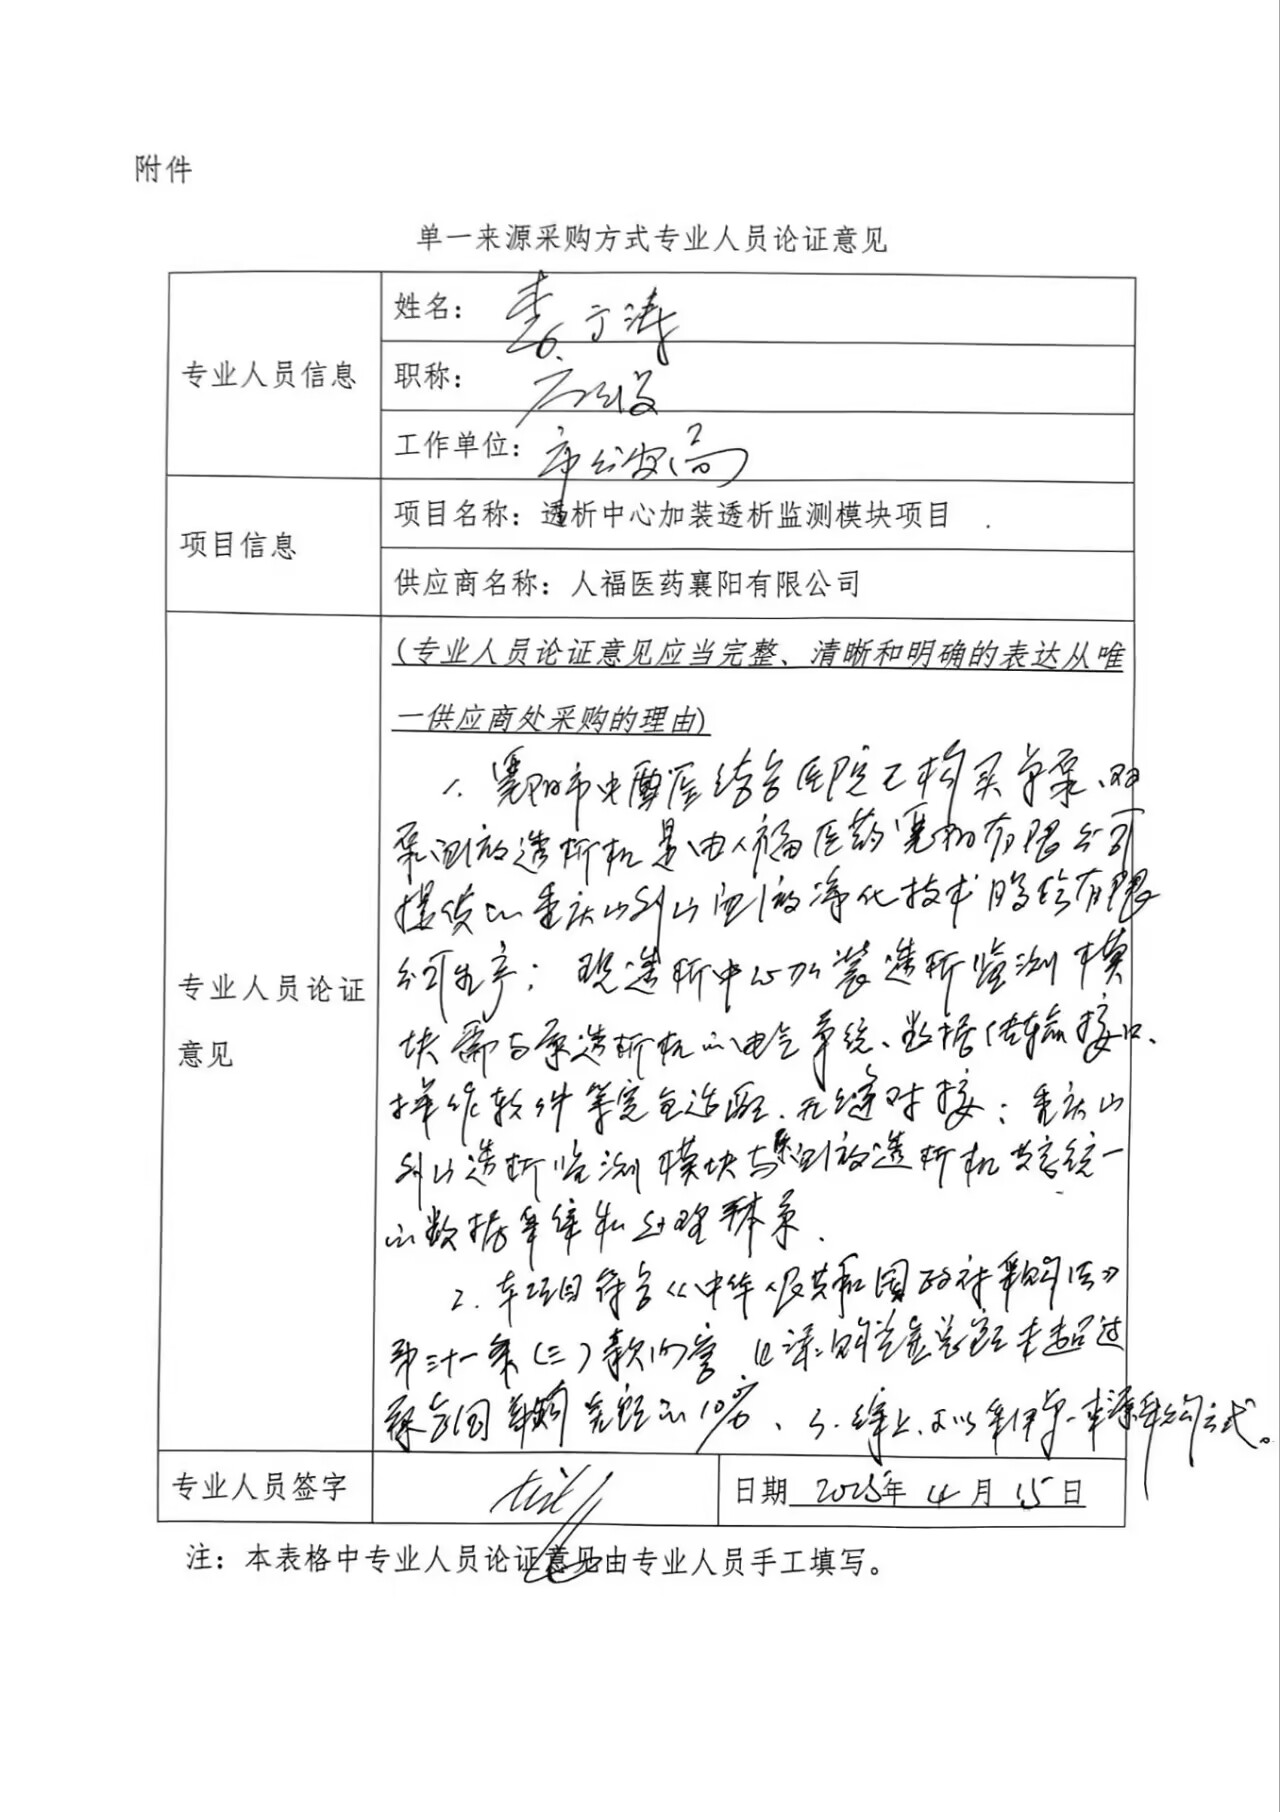 附件
单一来源采购方式专业人员论证意见
专业人员信息
姓名：
职称：
工作单位：市公安局
项目信息
项目名称：透析中心加装透析监测模块项目
供应商名称：人福医药襄阳有限公司
专业人员论证
意见
(专业人员论证意见应当完整、清晰和明确的表达从唯
一供应商处采购的理由)
1、襄阳市中西医结合医院已购买单泵、双
泵血液透析机是由人福医药襄阳有限公司
提供的重庆山外山血液净化技术股份有限
公司生产；现透析中心加装透析监测模
块需与原透析机的电气系统、数据传输接口、
操作软件等完全适配、无缝对接；重庆山
外山透析监测模块与血液透析机共享统一
的数据采集和处理体系.
2. 本项目符合《中华人民共和国政府采购法》
第三十一条(三)款内容 且添购资金总额未超过
原合同采购金额的10%、3. 综上、可以采用单一来源采购方式。
专业人员签字
日期 2025年 4 月 15 日
注：本表格中专业人员论证意见由专业人员手工填写。